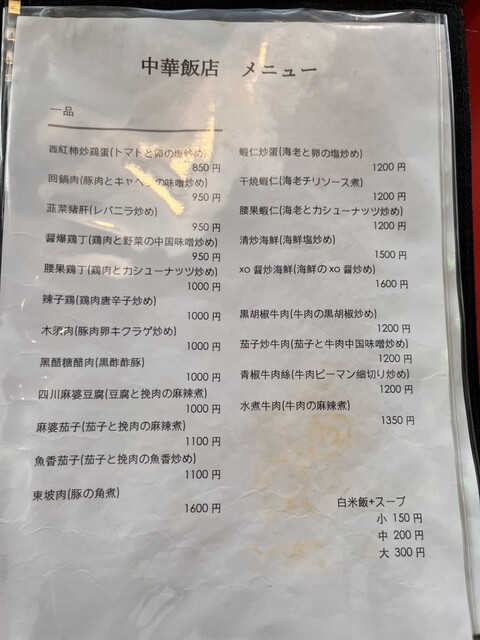 中華飯店 メニュー
一品
西紅柿炒鶏蛋(トマトと卵の塩炒め)
850 円
回鍋肉(豚肉とキャベツの味噌炒め)
950 円
韮菜猪肝(レバニラ炒め)
950 円
醤爆鶏丁(鶏肉と野菜の中国味噌炒め)
950 円
腰果鶏丁(鶏肉とカシューナッツ炒め)
1000 円
辣子鶏(鶏肉唐辛子炒め)
1000 円
木須肉(豚肉卵キクラゲ炒め)
1000 円
黒醋糖醋肉(黒酢酢豚)
1000 円
四川麻婆豆腐(豆腐と挽肉の麻辣煮)
1000 円
麻婆茄子(茄子と挽肉の麻辣煮)
1100 円
魚香茄子(茄子と挽肉の魚香炒め)
1100 円
東坡肉(豚の角煮)
1600 円
蝦仁炒蛋(海老と卵の塩炒め)
1200 円
干焼蝦仁(海老チリソース煮)
1200 円
腰果蝦仁(海老とカシューナッツ炒め)
1200 円
清炒海鮮(海鮮塩炒め)
1500 円
xo 醤炒海鮮(海鮮の xo 醤炒め)
1600 円
黒胡椒牛肉(牛肉の黒胡椒炒め)
1200 円
茄子炒牛肉(茄子と牛肉中国味噌炒め)
1200 円
青椒牛肉絲(牛肉ピーマン細切り炒め)
1200 円
水煮牛肉(牛肉の麻辣煮)
1350 円
白米飯+スープ
小 150 円
中 200 円
大 300 円